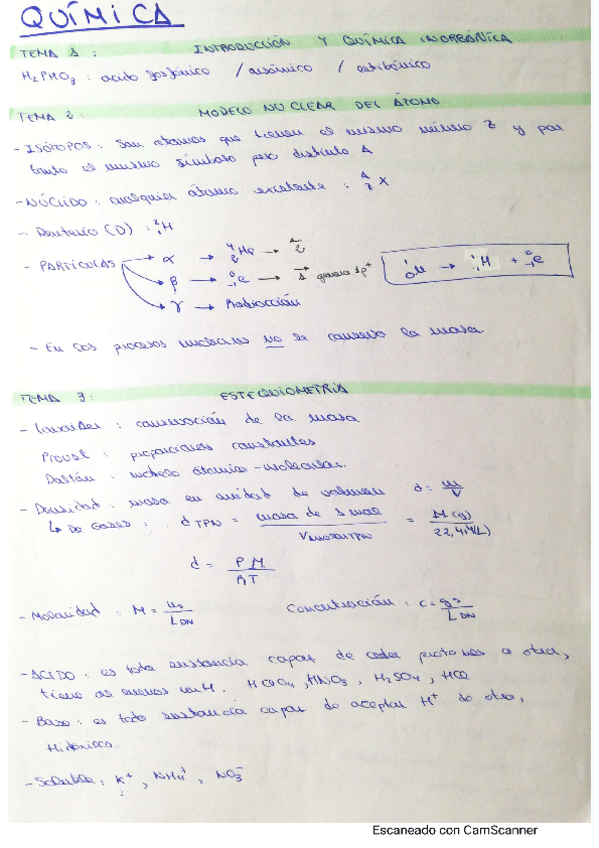 QUÍMICA
TEMA 1: INTRODUCCIÓN Y QUÍMICA INORGÁNICA
H₂PHO₃: acido fosfónico / arsónico / estibónico
TEMA 2: MODELO NUCLEAR DEL ÁTOMO
- ISÓTOPOS: Son átomos que tienen el mismo número Z y por
tanto el mismo símbolo pero distinto A
- NÚCLIDO: cualquier átomo existente: ᴬ_Z X
- Deuterio (D): ²₁H
- PARTÍCULAS → α → ⁴₂He → 2⁻
→ β → ⁰₋₁e → genera 1p⁺
¹₀n → ¹₁H + ⁰₋₁e
→ γ → Radiación
- En los procesos nucleares no se conserva la masa
TEMA 3: ESTEQUIOMETRÍA
- Lavoisier: conservación de la masa
Proust: proporciones constantes
Daltón: modelo átomico-molecular.
- Densidad: masa en unidad de volumen d = m/V
↳ De Gases: d TPN = masa de 1 mol / V = M(g) / 22,4(L)
d = PM / RT
- Molaridad: M = / L DN Concentración: c = gs / L DN
- ACIDO: es toda sustancia capaz de ceder protones a otra,
tiene al menos un H. HClO₄, HNO₃, H₂SO₄, HCl
- Base: es toda sustancia capaz de aceptar H⁺ de otra,
Hidróxidos.
- Soluble: K⁺, NH₄⁺, NO₃⁻
Escaneado con CamScanner